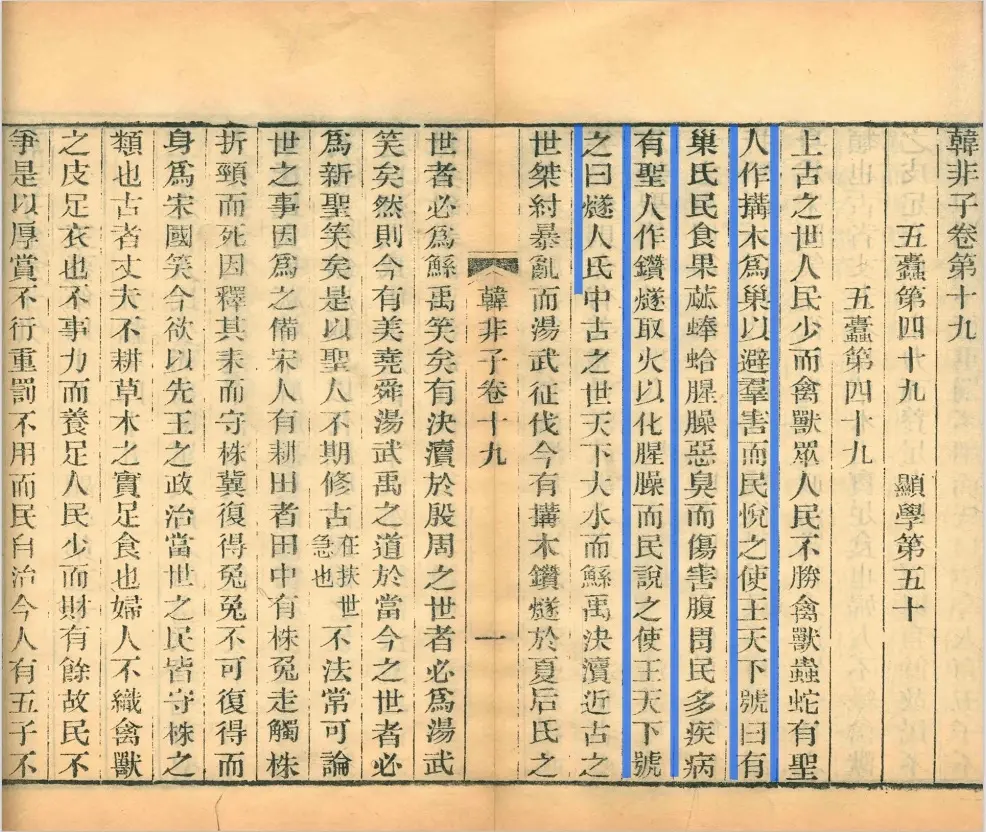 韓非子卷第十九
五蠹第四十九　顯學第五十
五蠹第四十九
上古之世人民少而禽獸眾人民不勝禽獸蟲蛇有聖
人作搆木爲巢以避羣害而民悅之使王天下號曰有
巢氏民食果蓏蜯蛤腥臊惡臭而傷害腹胃民多疾病
有聖人作鑽燧取火以化腥臊而民說之使王天下號
之曰燧人氏中古之世天下大水而鯀禹決瀆近古之
世桀紂暴亂而湯武征伐今有搆木鑽燧於夏后氏之
韓非子卷十九　一
世者必爲鯀禹笑矣有決瀆於殷周之世者必爲湯武
笑矣然則今有美堯舜湯武禹之道於當今之世者必
爲新聖笑矣是以聖人不期修古在扶世急也不法常可論
世之事因爲之備宋人有耕田者田中有株兔走觸株
折頸而死因釋其耒而守株冀復得兔兔不可復得而
身爲宋國笑今欲以先王之政治當世之民皆守株之
類也古者丈夫不耕草木之實足食也婦人不織禽獸
之皮足衣也不事力而養足人民少而財有餘故民不
爭是以厚賞不行重罰不用而民自治今人有五子不